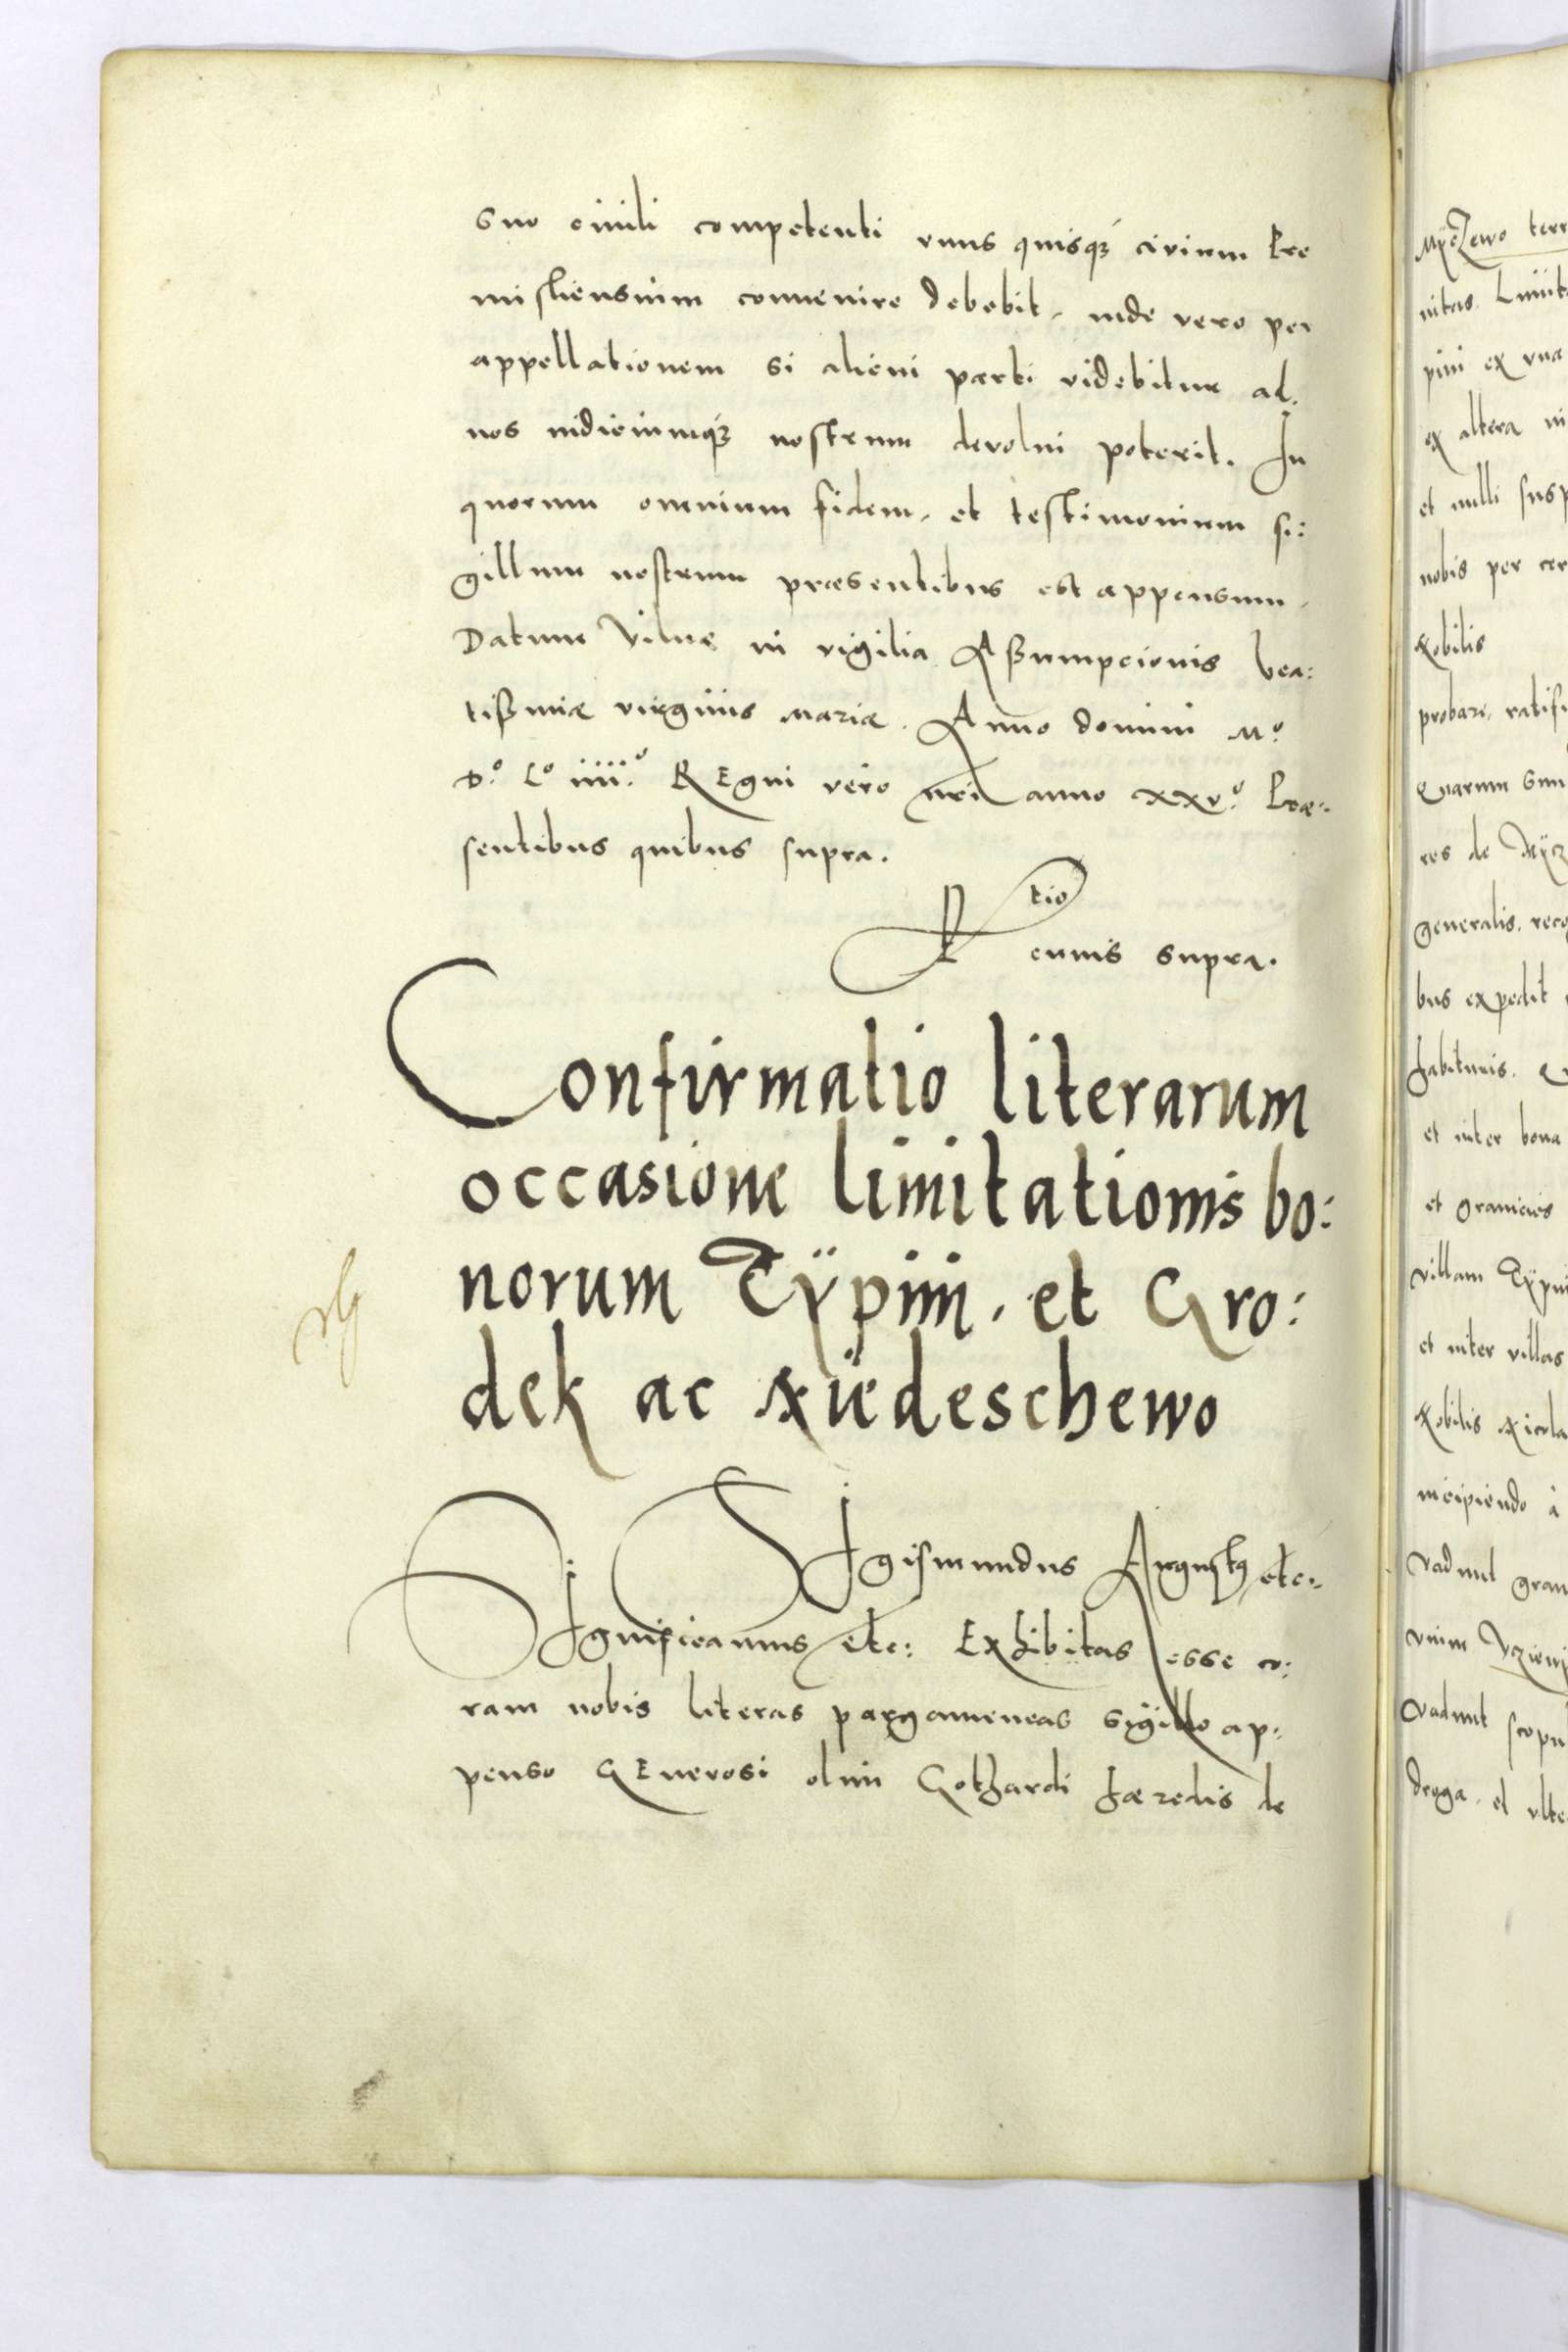 suo ciuili competenti vnus quisq; civium Pre
misliensium conuenire debebit, inde vero per
appellationem si alicui parti videbitur ad
nos iudiciumq; nostrum devolui poterit. In
quorum omnium fidem, et testimonium si:
gillum nostrum præsentibus est appensum.
Datum Vilnę in vigilia Aßumpcionis bea:
tißimæ virginis Mariæ. Anno domini Mº
Dº Lº iiiiº. REgni vero nri anno xxvº. Præ:
sentibus quibus supra.
R tio
cuius supra.
Confirmatio literarum
occasione limitationis bo:
norum Tÿpini, et Gro:
dek ac Niedeschewo
SIgismundus Augustus etc:
SIgnificamus etc: Exhibitas esse co:
ram nobis literas pargameneas sigillo ap:
penso GEnerosi olim Gothardi hæredis de
terr
nitas. Limit
pini ex vna
ex altera ni
et nulli susp
nobis per cer
Nobilis
probare, ratifi
Quarum
res de
generalis, reco
bus expedit
habituris.
et inter bona
et granicies
villam Tÿpni
et inter villas
Nobilis Nicola
incipiendo à
vadunt gran
vadunt
et vlte